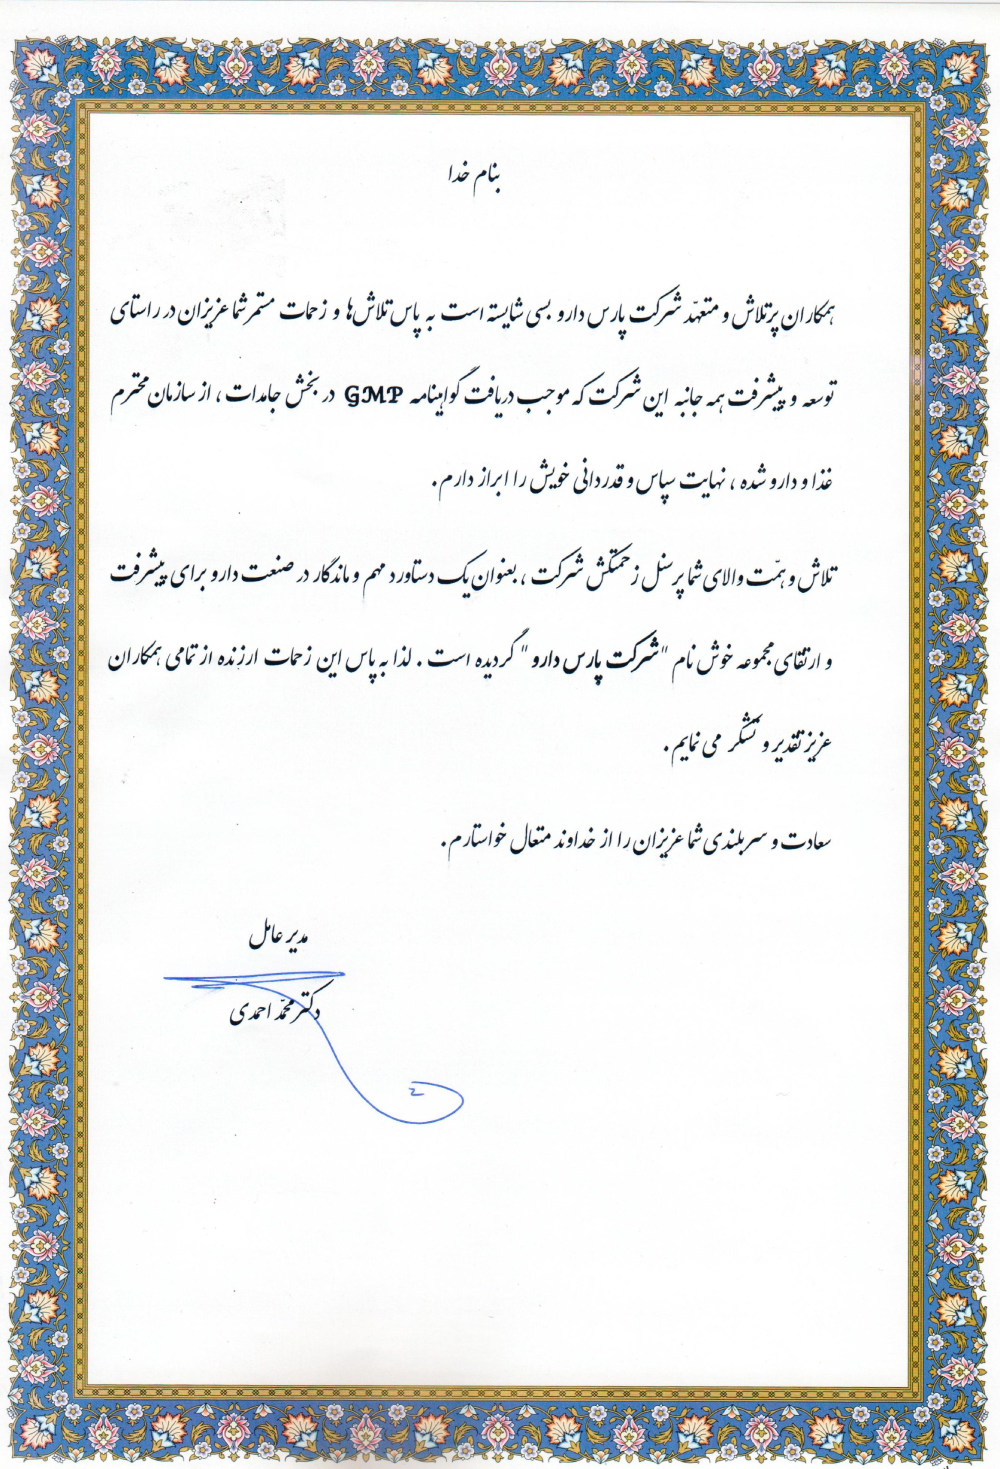 بنام خدا
همکاران پرتلاش و متعهّد شرکت پارس دارو بسی شایسته است به پاس تلاش‌ها و زحمات مستمر شما عزیزان در راستای
توسعه و پیشرفت همه جانبه این شرکت که موجب دریافت گواهینامه GMP در بخش جامدات ، از سازمان محترم
غذا و دارو شده ، نهایت سپاس و قدردانی خویش را ابراز دارم.
تلاش و همّت والای شما پرسنل زحمتکش شرکت ، بعنوان یک دستاورد مهم و ماندگار در صنعت دارو برای پیشرفت
و ارتقای مجموعه خوش نام "شرکت پارس دارو" گردیده است . لذا به پاس این زحمات ارزنده از تمامی همکاران
عزیز تقدیر و تشکر می نمایم.
سعادت و سربلندی شما عزیزان را از خداوند متعال خواستارم.
مدیر عامل
دکتر محمّد احمدی